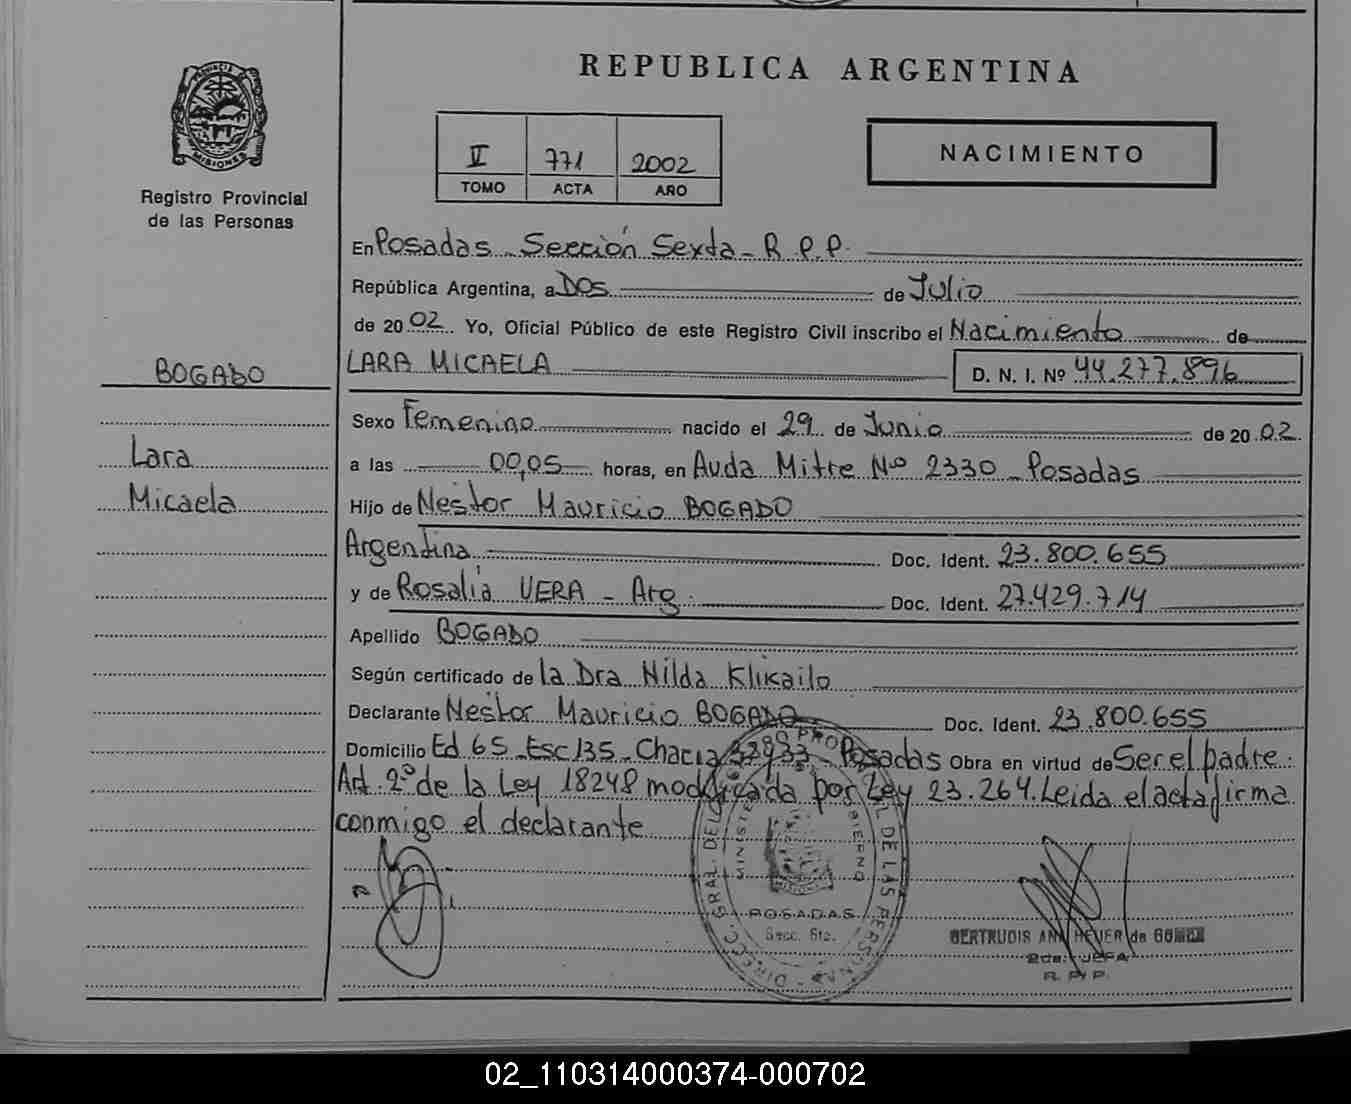 REPUBLICA ARGENTINA
PROVINCIA DE
MISIONES
Registro Provincial
de las Personas
II 771 2002
TOMO ACTA AÑO
NACIMIENTO
En Posadas - Sección Sexta - R.P.P.
República Argentina, a Dos de Julio
de 2002 Yo, Oficial Público de este Registro Civil inscribo el Nacimiento de
BOGADO
LARA MICAELA D. N. I. Nº 44.277.896
Sexo Femenino nacido el 29 de Junio de 2002
Lara
a las 00,05 horas, en Avda Mitre Nº 2330 - Posadas
Micaela
Hijo de Nestor Mauricio BOGADO
Argentina Doc. Ident. 23.800.655
y de Rosalia VERA - Arg. Doc. Ident. 27.429.714
Apellido BOGADO
Según certificado de la Dra Nilda Klikailo
Declarante Nestor Mauricio BOGADO Doc. Ident. 23.800.655
Domicilio Ed 65 - Esc 135 - Chacra - Posadas Obra en virtud de Ser el padre:
Art. 2º de la Ley 18248 modificada por Ley 23.264. Leida el acta firma
conmigo el declarante
DIRECC. GRAL. DE LAS PERSONAS
POSADAS
Secc. 6ta.
GERTRUDIS ANA HEUER de
2da. JEFA
R. P. P.
02_110314000374-000702